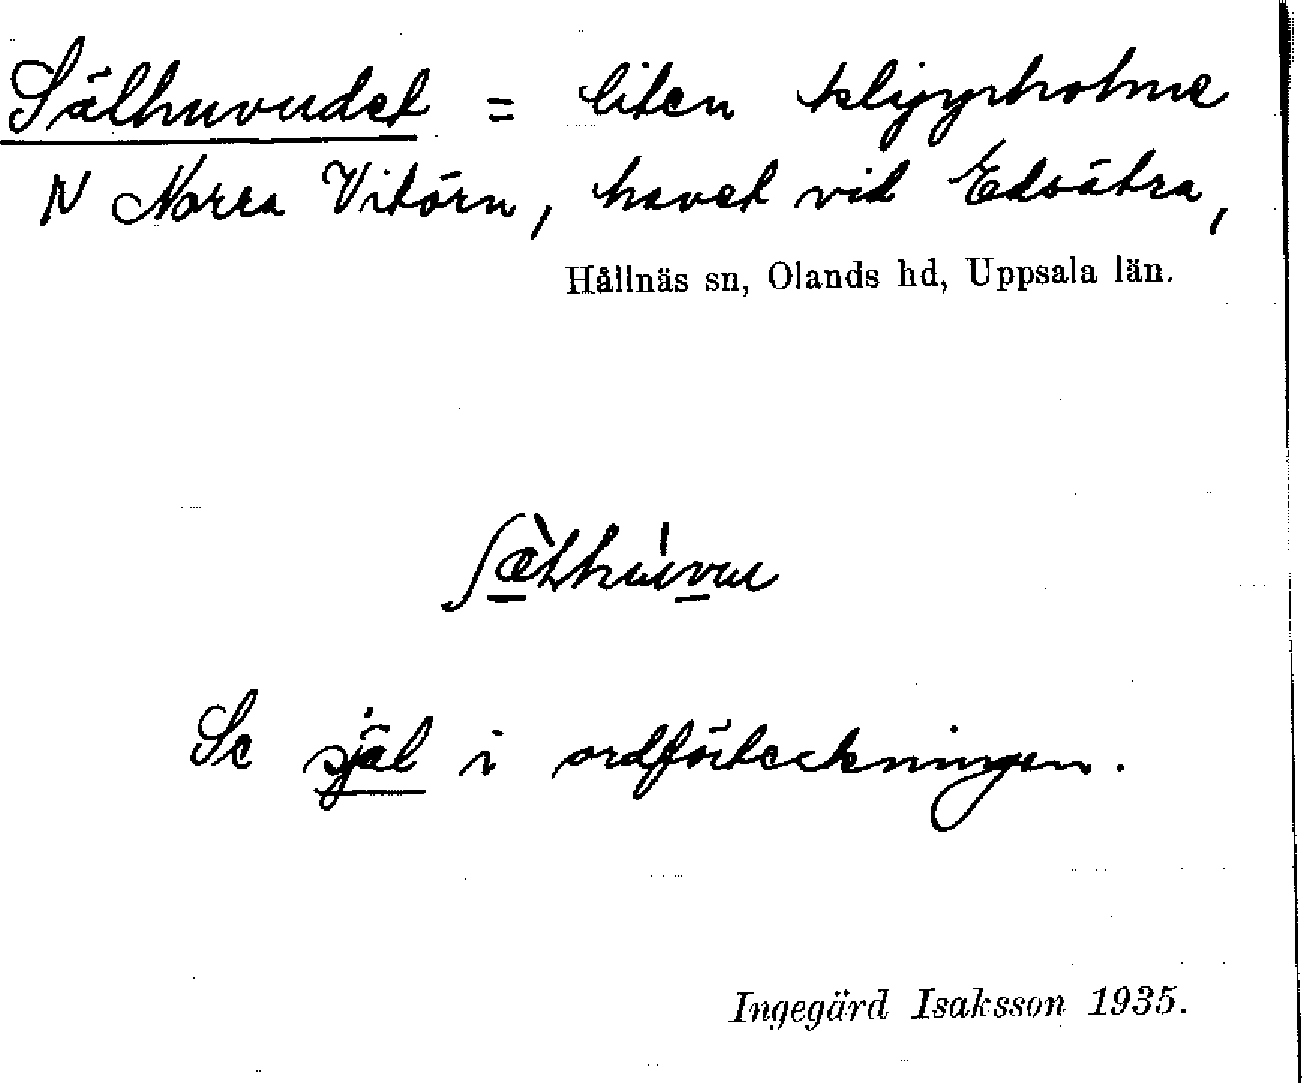 Sälhuvudet = liten klippholme
N Norra Vitörn, havet vid Edsätra,
Hållnäs sn, Olands hd, Uppsala län.
Se själ i ordförteckningen.
Ingegärd Isaksson 1935.